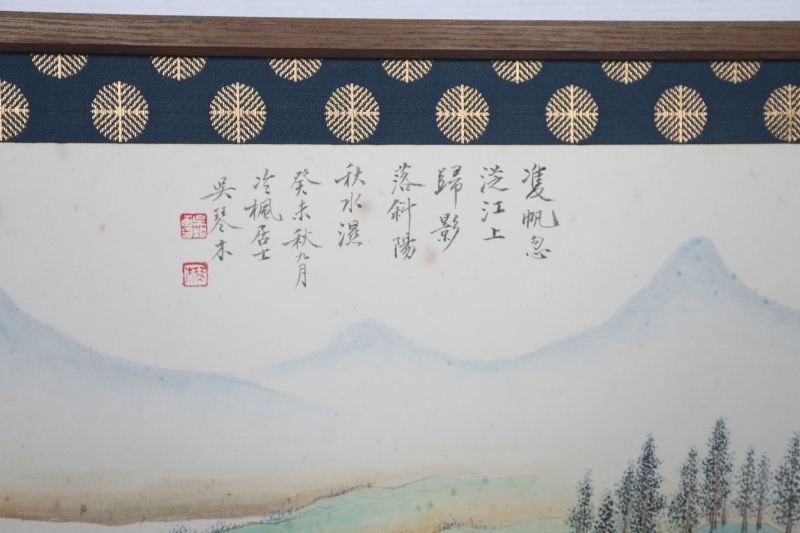 隻帆忽
從江上
歸影
落斜陽
秋水濕
癸未秋九月
冷楓居士
吳琴木